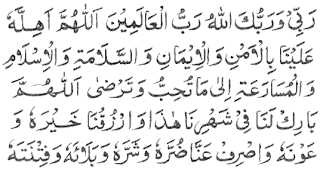 رَبِّيْ وَرَبُّكَ اللهُ رَبُّ الْعَالَمِيْنَ اَللّٰهُمَّ اَهِلَّهُ
عَلَيْنَا بِالْاَمْنِ وَالْاِيْمَانِ وَالسَّلَامَةِ وَالْاِسْلَامِ
وَالْمُسَارَعَةِ اِلٰى مَا تُحِبُّ وَتَرْضٰى اَللّٰهُمَّ
بَارِكْ لَنَا فِيْ شَهْرِنَا هٰذَا وَارْزُقْنَا خَيْرَهُ وَ
عَوْنَهُ وَاصْرِفْ عَنَّا ضُرَّهُ وَشَرَّهُ وَبَلَائَهُ وَفِتْنَتَهُ